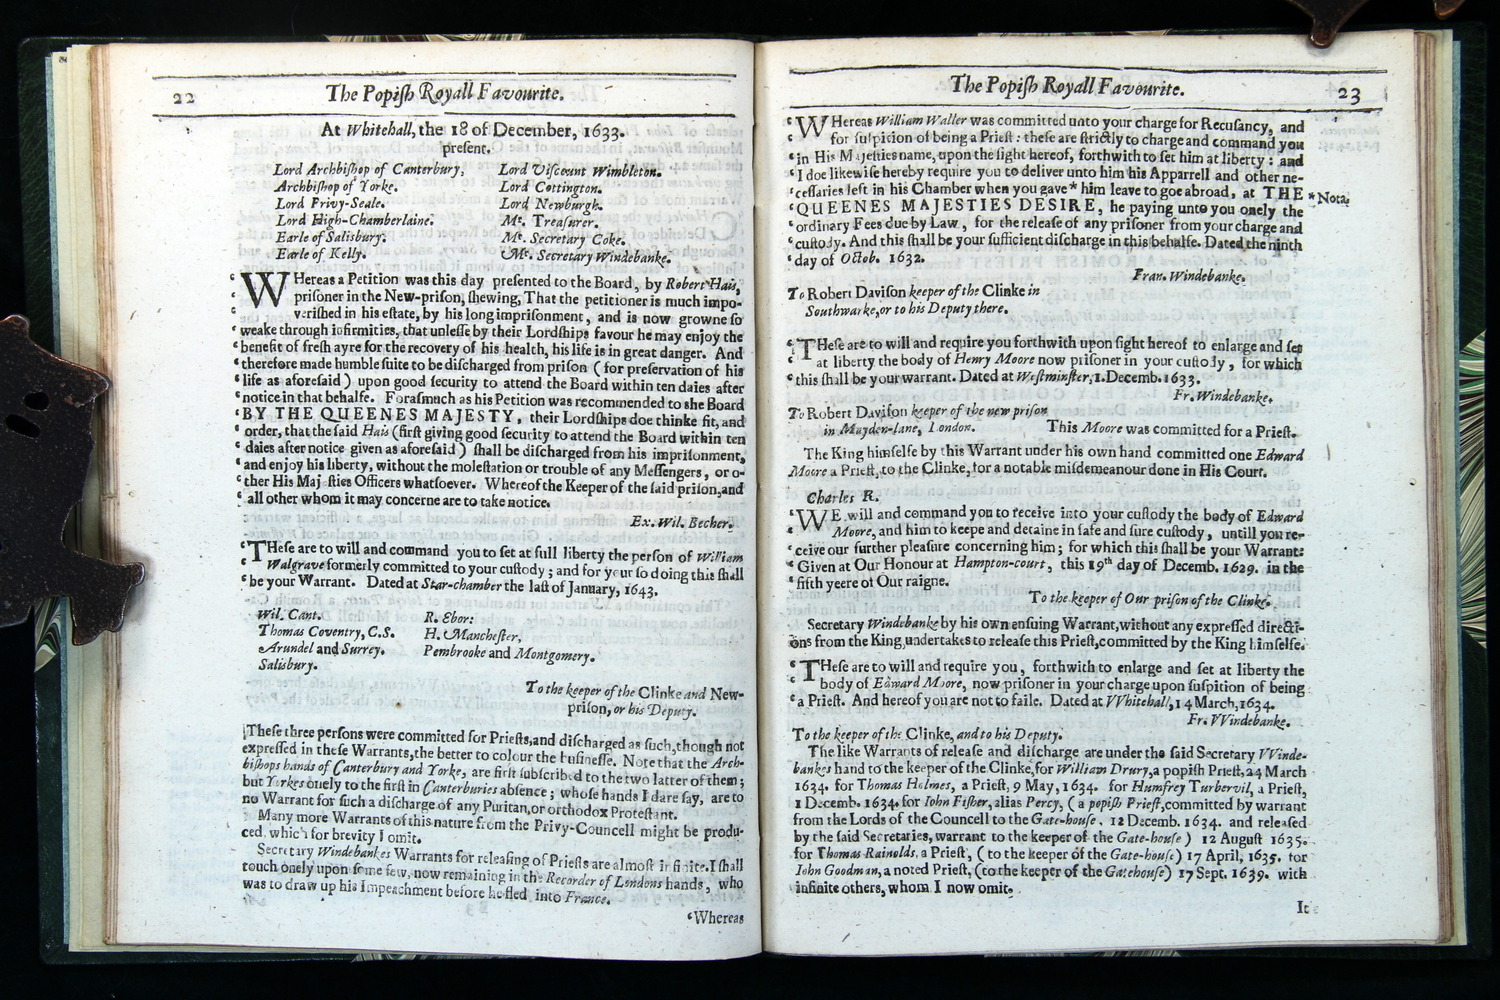 22
The Popiſh Royall Favourite.
At Whitehall, the 18 of December, 1633.
preſent.
Lord Archbiſhop of Canterbury,
Archbiſhop of Yorke.
Lord Privy-Seale.
Lord High-Chamberlaine.
Earle of Salisbury.
Earle of Kelly.
Lord Viſcount Wimbleton.
Lord Cottington.
Lord Newburgh.
Mr. Treaſurer.
Mr. Secretary Coke.
Mr. Secretary Windebanke.
‘WHereas a Petition was this day preſented to the Board, by Robert Hais,
‘ priſoner in the New-priſon, ſhewing, That the petitioner is much impo-
‘ veriſhed in his eſtate, by his long impriſonment, and is now growne ſo
‘weake through infirmities, that unleſſe by their Lordſhips favour he may enjoy the
‘benefit of freſh ayre for the recovery of his health, his life is in great danger. And
‘therefore made humble ſuite to be diſcharged from priſon (for preſervation of his
‘life as aforeſaid) upon good ſecurity to attend the Board within ten daies after
‘notice in that behalfe. Foraſmuch as his Petition was recommended to the Board
‘BY THE QUEENES MAJESTY, their Lordſhips doe thinke fit, and
‘order, that the ſaid Hais (firſt giving good ſecurity to attend the Board within ten
‘daies after notice given as aforeſaid) ſhall be diſcharged from his impriſonment,
‘and enjoy his liberty, without the moleſtation or trouble of any Meſſengers, or o-
‘ther His Maj ſties Officers whatſoever. Whereof the Keeper of the ſaid priſon, and
‘all other whom it may concerne are to take notice.
Ex. Wil. Becher.
‘THeſe are to will and command you to ſet at full liberty the perſon of William
‘ Walgrave formerly committed to your cuſtody; and for your ſo doing this ſhall
‘be your Warrant. Dated at Star-chamber the laſt of January, 1643.
Wil. Cant.
Thomas Coventry, C.S.
Arundel and Surrey.
Salisbury.
R. Ebor:
H. Mancheſter,
Pembrooke and Montgomery.
To the keeper of the Clinke and New-
priſon, or his Deputy.
Theſe three perſons were committed for Prieſts, and diſcharged as ſuch, though not
expreſſed in theſe Warrants, the better to colour the buſineſſe. Note that the Arch-
biſhops hands of Canterbury and Yorke, are firſt ſubſcribed to the two latter of them;
but Yorkes onely to the firſt in Canterburies abſence; whoſe hands I dare ſay, are to
no Warrant for ſuch a diſcharge of any Puritan, or orthodox Proteſtant.
Many more Warrants of this nature from the Privy-Councell might be produ-
ced, which for brevity I omit.
Secretary Windebankes Warrants for releaſing of Prieſts are almoſt infinite. I ſhall
touch onely upon ſome few, now remaining in the Recorder of Londons hands, who
was to draw up his Impeachment before he fled into France.
‘Whereas
The Popiſh Royall Favourite.
23
‘WHereas William Waller was committed unto your charge for Recuſancy, and
‘ for ſuſpicion of being a Prieſt: theſe are ſtrictly to charge and command you
‘in His Majeſties name, upon the ſight hereof, forthwith to ſet him at liberty: and
‘I doe likewiſe hereby require you to deliver unto him his Apparrell and other ne-
‘ceſſaries left in his Chamber when you gave* him leave to goe abroad, at THE
*Nota.
‘QUEENES MAJESTIES DESIRE, he paying unto you onely the
‘ordinary Fees due by Law, for the releaſe of any priſoner from your charge and
‘cuſtody. And this ſhall be your ſufficient diſcharge in this behalfe. Dated the ninth
‘day of Octob. 1632.
Fran. Windebanke.
To Robert Daviſon keeper of the Clinke in
Southwarke, or to his Deputy there.
‘THeſe are to will and require you forthwith upon ſight hereof to enlarge and ſet
‘ at liberty the body of Henry Moore now priſoner in your cuſtody, for which
‘this ſhall be your warrant. Dated at Weſtminſter, 1. Decemb. 1633.
Fr. Windebanke.
To Robert Daviſon keeper of the new priſon
in Mayden-lane, London.
This Moore was committed for a Prieſt.
The King himſelfe by this Warrant under his own hand committed one Edward
Moore a Prieſt, to the Clinke, for a notable miſdemeanour done in His Court.
Charles R.
‘WE will and command you to receive into your cuſtody the body of Edward
‘ Moore, and him to keepe and detaine in ſafe and ſure cuſtody, untill you re-
‘ceive our further pleaſure concerning him; for which this ſhall be your Warrant:
‘Given at Our Honour at Hampton-court, this 19th day of Decemb. 1629. in the
‘fifth yeere of Our raigne.
To the keeper of Our priſon of the Clinke.
Secretary Windebanke by his own enſuing Warrant, without any expreſſed directi-
ons from the King, undertakes to releaſe this Prieſt, committed by the King himſelfe.
‘THeſe are to will and require you, forthwith to enlarge and ſet at liberty the
‘ body of Edward Moore, now priſoner in your charge upon ſuſpition of being
‘a Prieſt. And hereof you are not to faile. Dated at VVhitehall, 14 March, 1634.
Fr. VVindebanke.
To the keeper of the Clinke, and to his Deputy.
The like Warrants of releaſe and diſcharge are under the ſaid Secretary VVinde-
bankes hand to the keeper of the Clinke, for William Drury, a popiſh Prieſt, 24 March
1634. for Thomas Holmes, a Prieſt, 9 May, 1634. for Humfrey Turbervil, a Prieſt,
1 Decemb. 1634. for Iohn Fiſher, alias Percy, (a popiſh Prieſt, committed by warrant
from the Lords of the Councell to the Gate-houſe. 12 Decemb. 1634. and releaſed
by the ſaid Secretaries, warrant to the keeper of the Gate-houſe) 12 Auguſt 1635.
for Thomas Rainolds, a Prieſt, (to the keeper of the Gate-houſe) 17 April, 1635. for
Iohn Goodman, a noted Prieſt, (to the keeper of the Gatehouſe) 17 Sept. 1639. with
infinite others, whom I now omit.
It